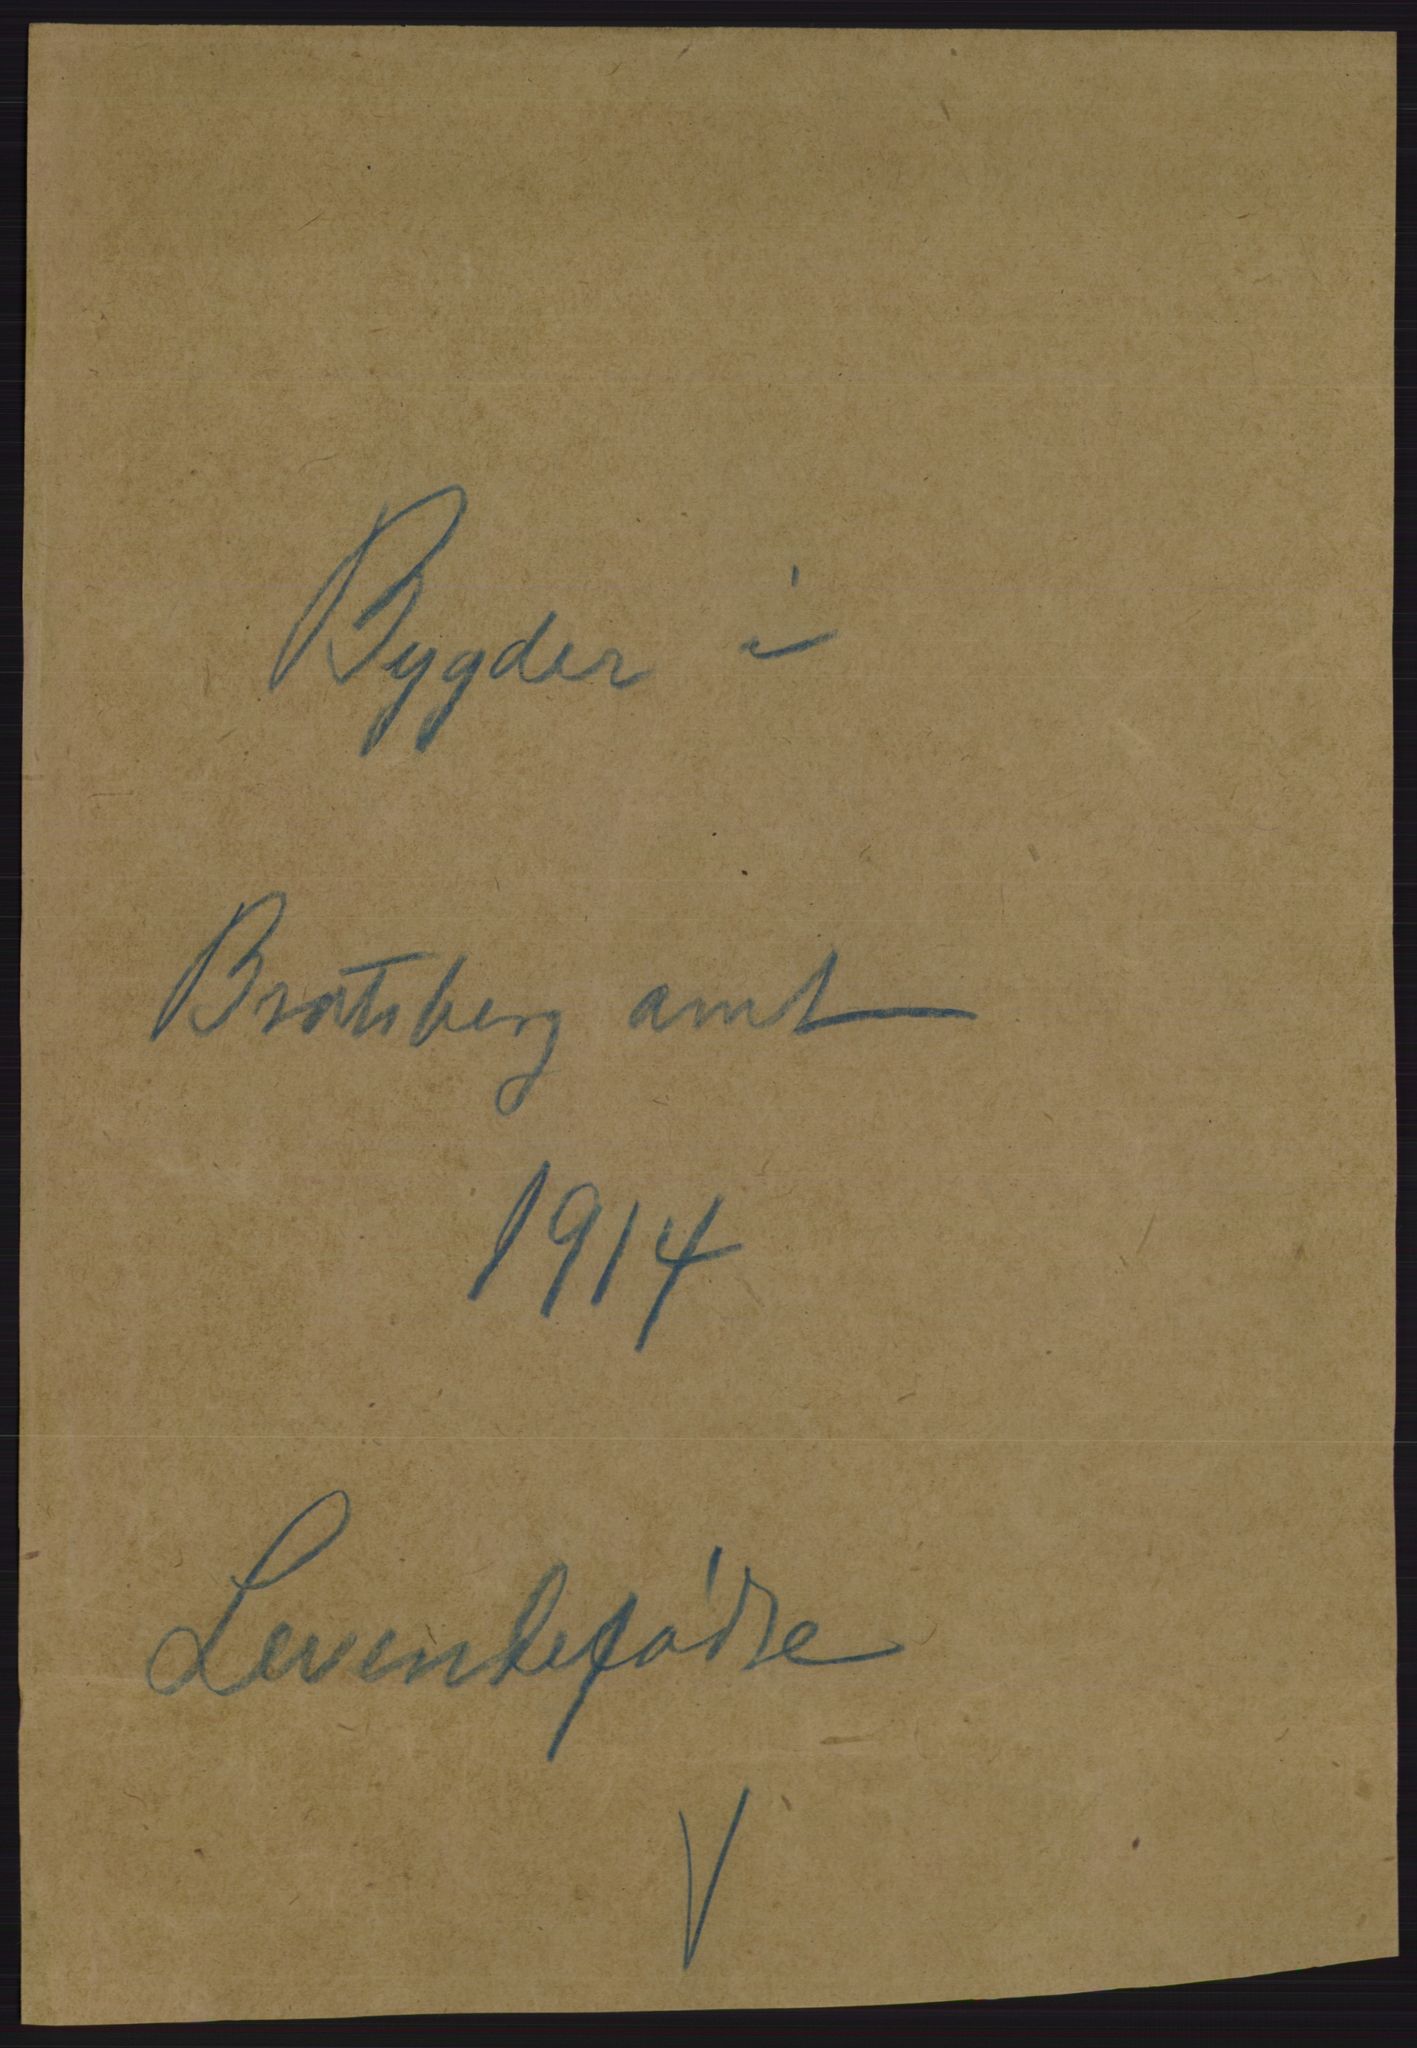 Bygder i
Bratsberg amt
1914
Levendefødte
V